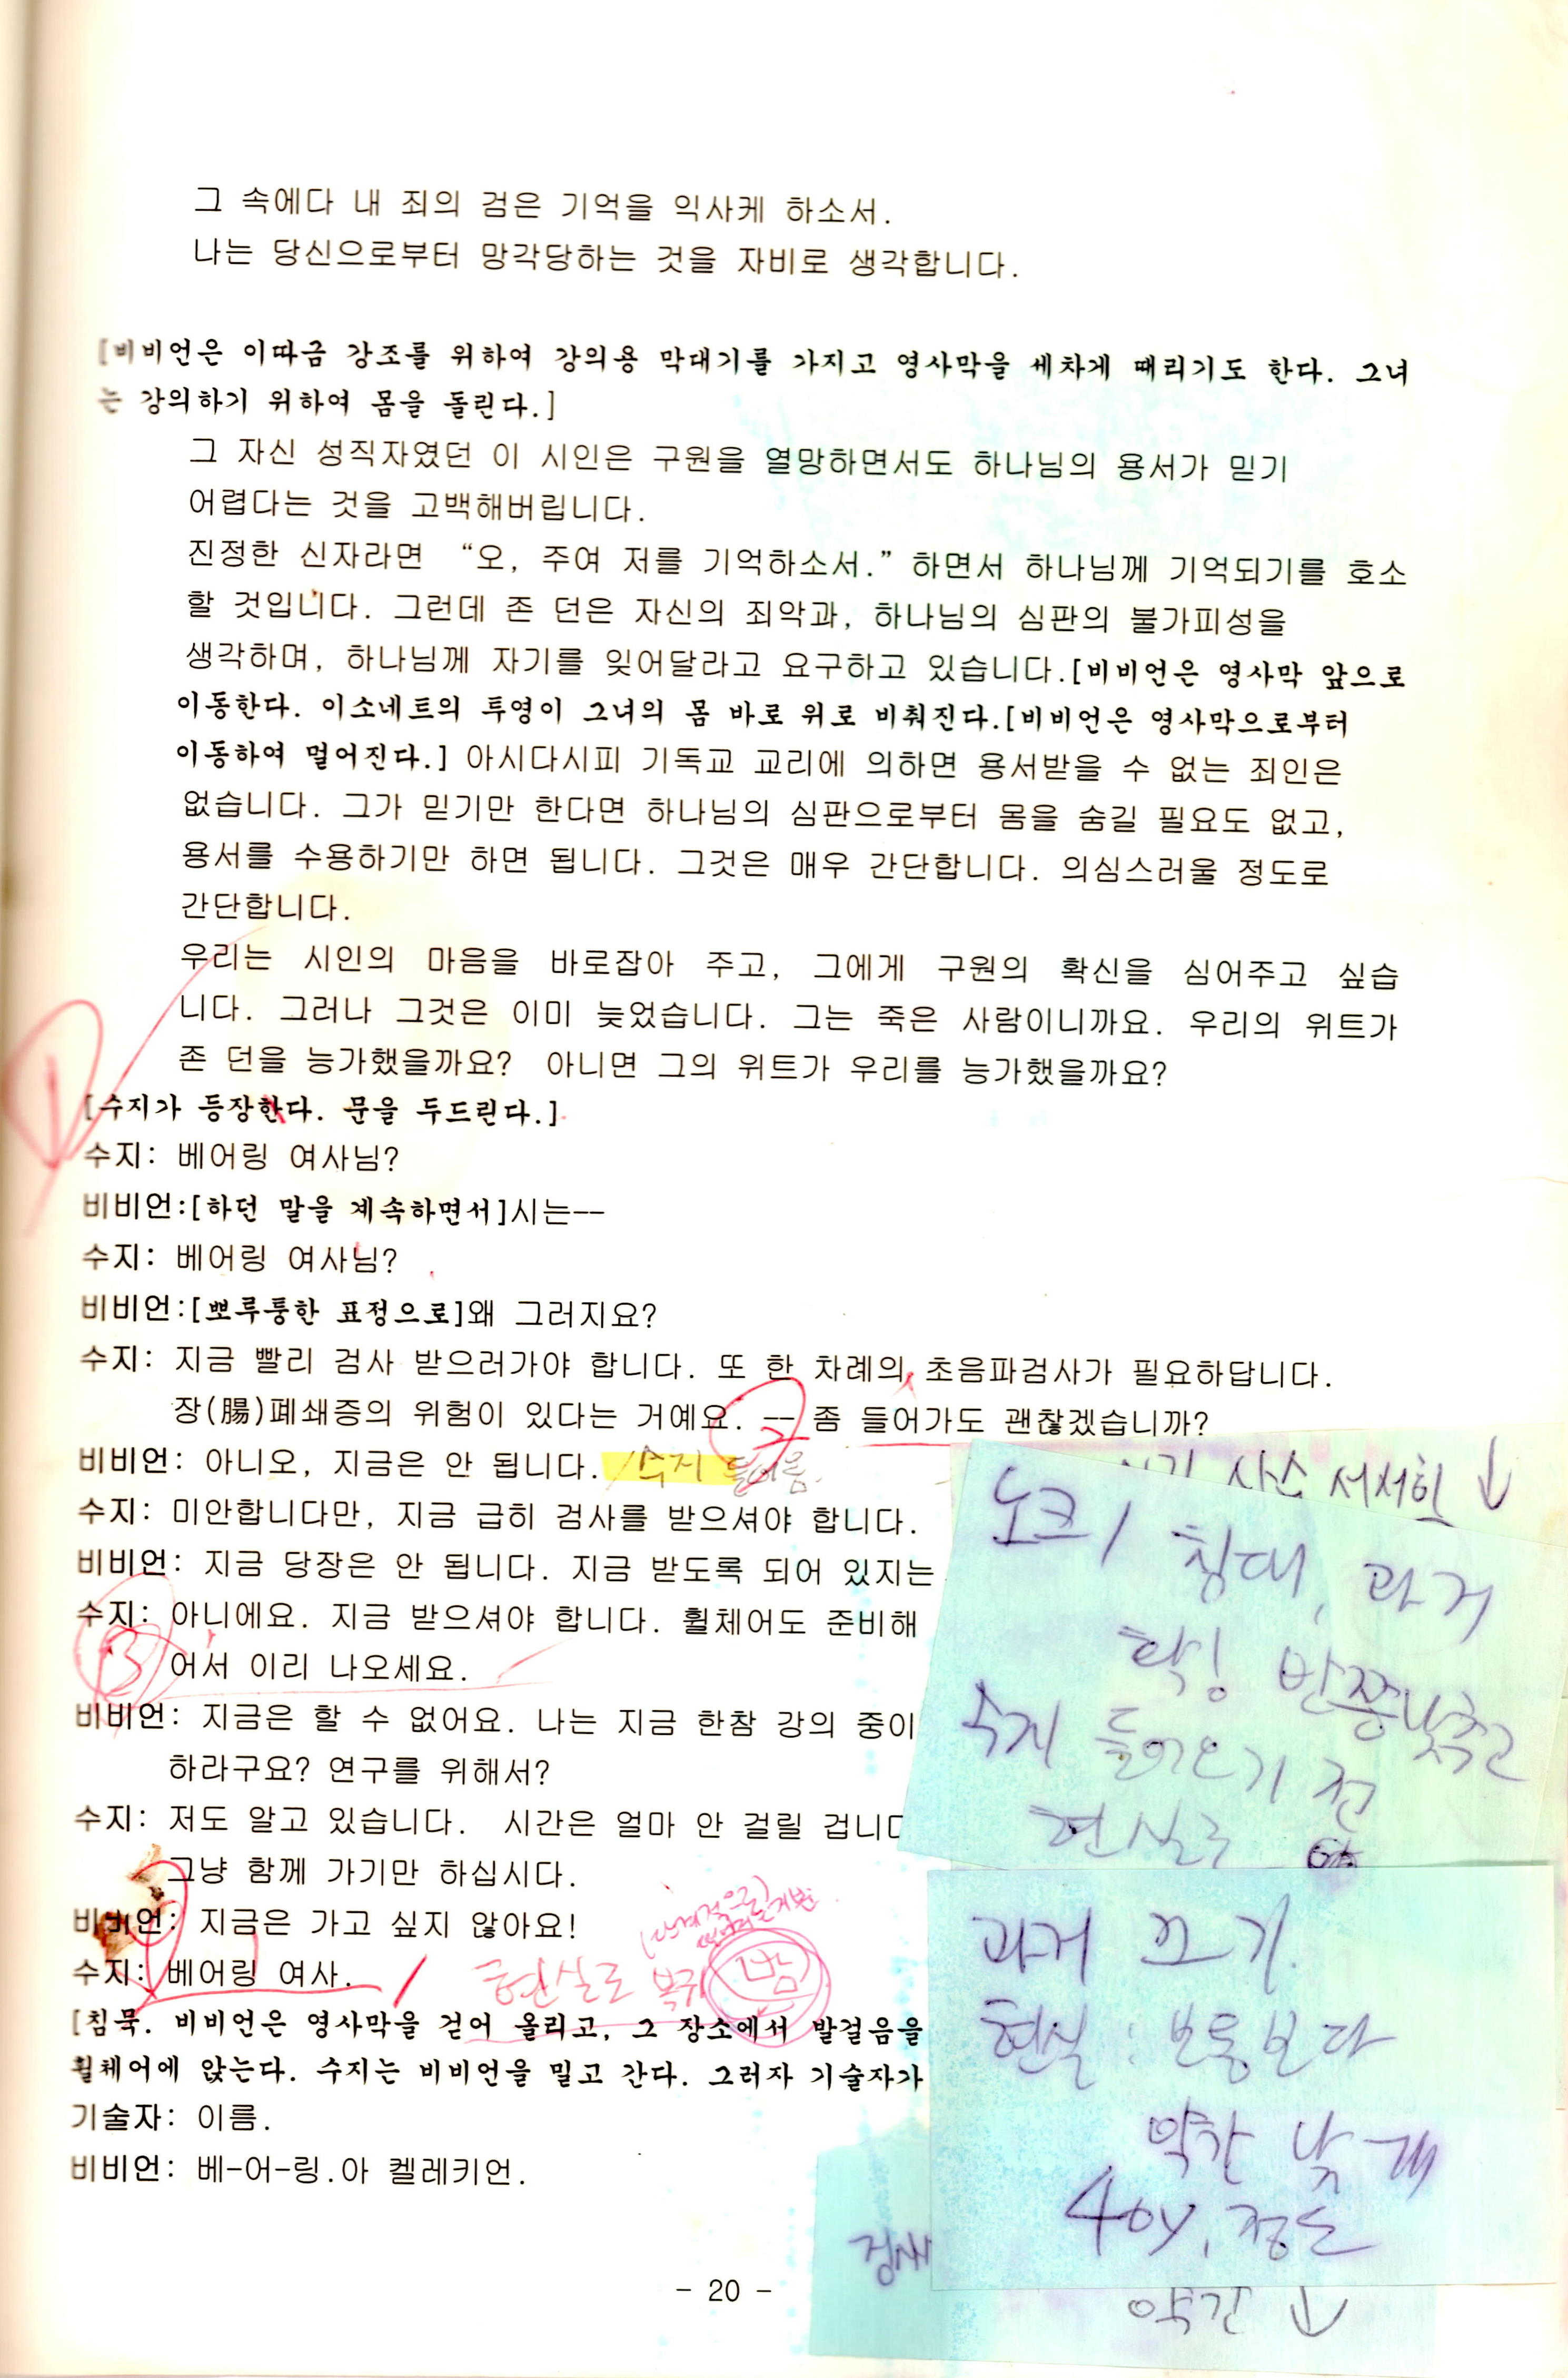 그 속에다 내 죄의 검은 기억을 익사케 하소서.
나는 당신으로부터 망각당하는 것을 자비로 생각합니다.
[비비언은 이따금 강조를 위하여 강의용 막대기를 가지고 영사막을 세차게 때리기도 한다. 그녀
는 강의하기 위하여 몸을 돌린다.]
그 자신 성직자였던 이 시인은 구원을 열망하면서도 하나님의 용서가 믿기
어렵다는 것을 고백해버립니다.
진정한 신자라면 “오, 주여 저를 기억하소서.” 하면서 하나님께 기억되기를 호소
할 것입니다. 그런데 존 던은 자신의 죄악과, 하나님의 심판의 불가피성을
생각하며, 하나님께 자기를 잊어달라고 요구하고 있습니다.[비비언은 영사막 앞으로
이동한다. 이소네트의 투영이 그녀의 몸 바로 위로 비춰진다.[비비언은 영사막으로부터
이동하여 멀어진다.] 아시다시피 기독교 교리에 의하면 용서받을 수 없는 죄인은
없습니다. 그가 믿기만 한다면 하나님의 심판으로부터 몸을 숨길 필요도 없고,
용서를 수용하기만 하면 됩니다. 그것은 매우 간단합니다. 의심스러울 정도로
간단합니다.
우리는 시인의 마음을 바로잡아 주고, 그에게 구원의 확신을 심어주고 싶습
니다. 그러나 그것은 이미 늦었습니다. 그는 죽은 사람이니까요. 우리의 위트가
존 던을 능가했을까요? 아니면 그의 위트가 우리를 능가했을까요?
1
[수지가 등장한다. 문을 두드린다.]
수지: 베어링 여사님?
비비언:[하던 말을 계속하면서]시는--
수지: 베어링 여사님?
비비언:[뽀루퉁한 표정으로]왜 그러지요?
수지: 지금 빨리 검사 받으러가야 합니다. 또 한 차례의 초음파검사가 필요하답니다.
장(腸)폐쇄증의 위험이 있다는 거예요. -- 좀 들어가도 괜찮겠습니까?
2
비비언: 아니오, 지금은 안 됩니다. 수지 들어옴.
서서히 ↓
수지: 미안합니다만, 지금 급히 검사를 받으셔야 합니다.
비비언: 지금 당장은 안 됩니다. 지금 받도록 되어 있지는
수지: 아니에요. 지금 받으셔야 합니다. 휠체어도 준비해
3
어서 이리 나오세요.
비비언: 지금은 할 수 없어요. 나는 지금 한참 강의 중이
하라구요? 연구를 위해서?
수지: 저도 알고 있습니다. 시간은 얼마 안 걸릴 겁니다
그냥 함께 가기만 하십시다.
비비언: 지금은 가고 싶지 않아요!
수지: 베어링 여사.
현실로 복귀 밤
[침묵. 비비언은 영사막을 걷어 올리고, 그 장소에서 발걸음을
휠체어에 앉는다. 수지는 비비언을 밀고 간다. 그러자 기술자가
기술자: 이름.
비비언: 베-어-링.아 켈레키언.
노크 / 침대, 과거
반쯤 낮추고
수지 들어오기 전
현실로
과거 끄기.
현실 : 보통보다
약간 낮게
40%, 정도
약간 ↓
- 20 -